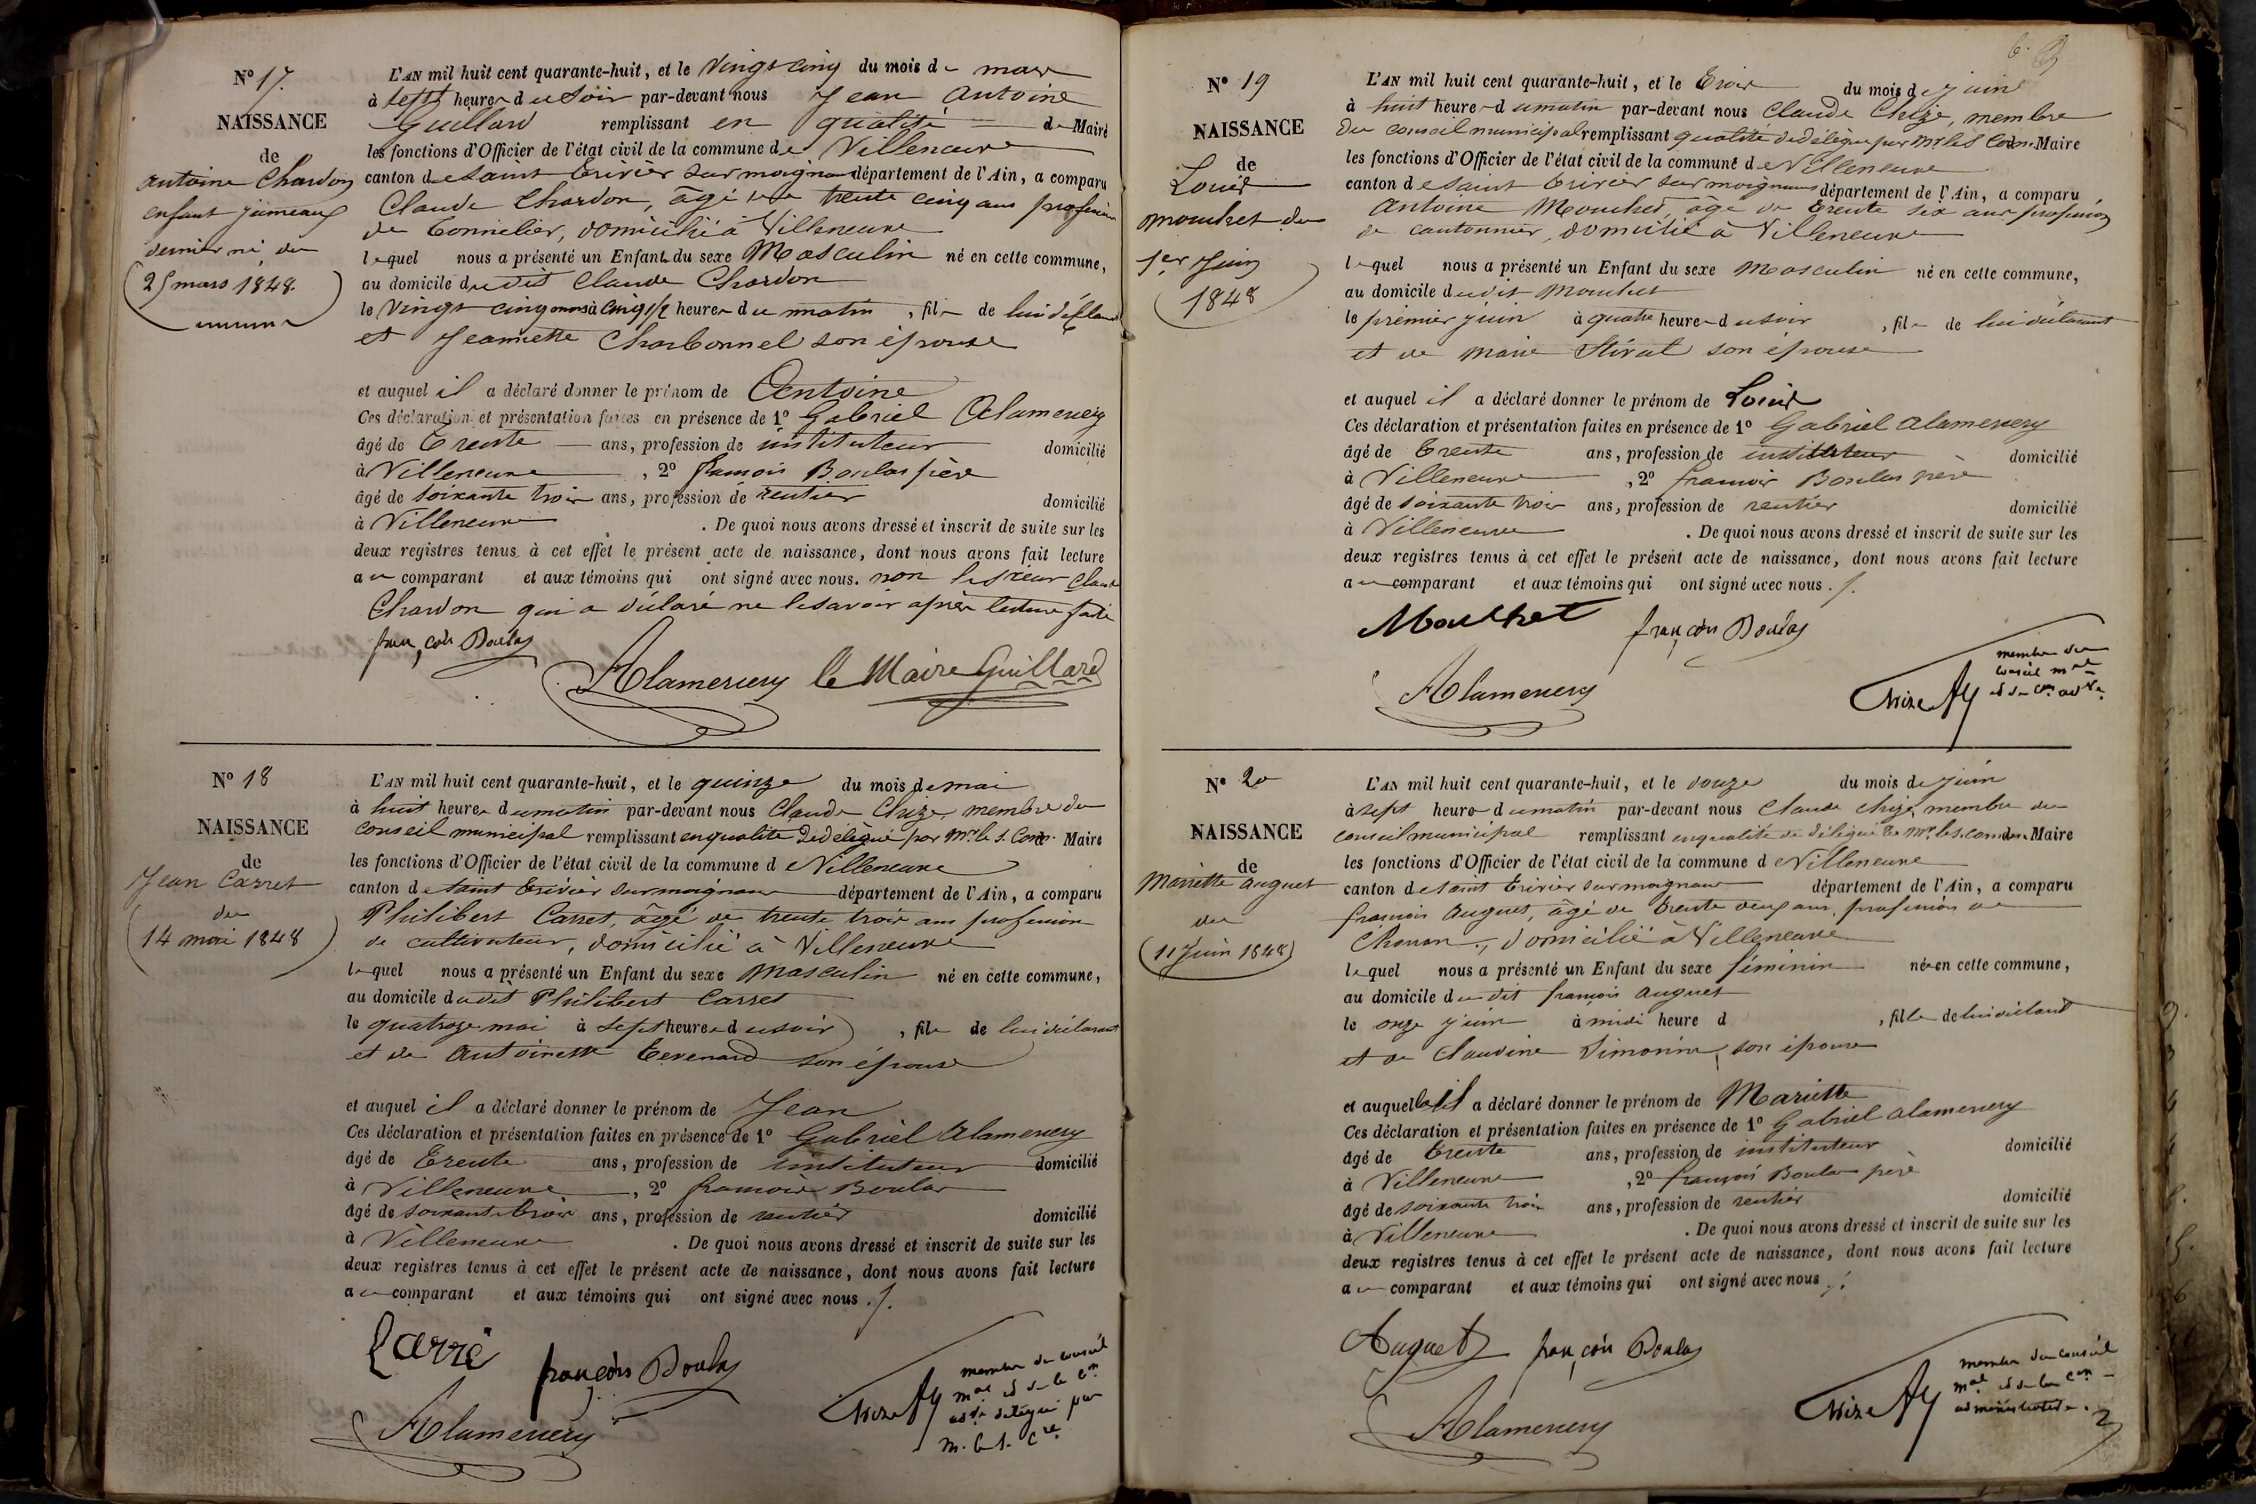 N° 17.
NAISSANCE
de
antoine Chardon
enfant jumeaux
dernier né, du
25 mars 1848.
L'AN mil huit cent quarante-huit, et le vingt cinq du mois de mars
à sept heures du soir par-devant nous Jean Antoine
Guillard remplissant en qualité de Maire
les fonctions d'Officier de l'état civil de la commune de Villeneuve
canton de saint Trivier sur moignans département de l'Ain, a comparu
Claude Chardon, âgé de trente cinq ans profession
de tonnelier, domicilié à Villeneuve
lequel nous a présenté un Enfant du sexe Masculin né en cette commune,
au domicile dudit Claude Chardon
le vingt cinq mars à cinq 1/2 heures du matin, fils de lui déclarant
et Jeannette Charbonnel son épouse
et auquel il a déclaré donner le prénom de Antoine
Ces déclaration et présentation faites en présence de 1° Gabriel Alamercery
âgé de trente ans, profession de instituteur domicilié
à Villeneuve, 2° françois Boulas père
âgé de soixante trois ans, profession de rentier domicilié
à Villeneuve. De quoi nous avons dressé et inscrit de suite sur les
deux registres tenus à cet effet le présent acte de naissance, dont nous avons fait lecture
au comparant et aux témoins qui ont signé avec nous. non le sieur Claude
Chardon qui a déclaré ne le savoir après lecture faite
françois Boulas
Alamercery le Maire Guillard
N° 18
NAISSANCE
de
Jean Carret
du
14 mai 1848
L'AN mil huit cent quarante-huit, et le quinze du mois de mai
à huit heures du matin par-devant nous Claude Chize, membre du
conseil municipal remplissant en qualité de délégué par Mr. le S. Com. Maire
les fonctions d'Officier de l'état civil de la commune de Villeneuve
canton de saint Trivier sur moignans département de l'Ain, a comparu
Philibert Carret, âgé de trente trois ans profession
de cultivateur, domicilié à Villeneuve
lequel nous a présenté un Enfant du sexe masculin né en cette commune,
au domicile dudit Philibert Carret
le quatorze mai à sept heures du soir, fils de lui déclarant
et de Antoinette Tevenard son épouse
et auquel il a déclaré donner le prénom de Jean
Ces déclaration et présentation faites en présence de 1° Gabriel Alamercery
âgé de trente ans, profession de instituteur domicilié
à Villeneuve, 2° françois Boulas
âgé de soixante trois ans, profession de rentier domicilié
à Villeneuve. De quoi nous avons dressé et inscrit de suite sur les
deux registres tenus à cet effet le présent acte de naissance, dont nous avons fait lecture
au comparant et aux témoins qui ont signé avec nous./.
Carré
françois Boulas
Alamercery
Chize
membre du conseil
mal et de la Con
adve délégué par
M. le S. Cre
N° 19
NAISSANCE
de
Louis
mouchet du
1er Juin
1848
L'AN mil huit cent quarante-huit, et le trois du mois de juin
à huit heures du matin par-devant nous Claude Chize, membre
du conseil municipal remplissant qualité de délégué par Mr. le S. Com. Maire
les fonctions d'Officier de l'état civil de la commune de Villeneuve
canton de saint Trivier sur moignans département de l'Ain, a comparu
Antoine Mouchet, âgé de trente six ans profession
de cantonnier, domicilié à Villeneuve
lequel nous a présenté un Enfant du sexe masculin né en cette commune,
au domicile dudit Mouchet
le premier juin à quatre heures du soir, fils de lui déclarant
et de marie Stivat son épouse
et auquel il a déclaré donner le prénom de Louis
Ces déclaration et présentation faites en présence de 1° Gabriel alamercery
âgé de trente ans, profession de instituteur domicilié
à Villeneuve, 2° françois Boulas père
âgé de soixante trois ans, profession de rentier domicilié
à Villeneuve. De quoi nous avons dressé et inscrit de suite sur les
deux registres tenus à cet effet le présent acte de naissance, dont nous avons fait lecture
au comparant et aux témoins qui ont signé avec nous./.
Mouchet
françois Boulas
Alamercery
Chize
membre du
conseil mal
et de Con adve
N° 20
NAISSANCE
de
Mariette auguet
du
11 Juin 1848
L'AN mil huit cent quarante-huit, et le douze du mois de juin
à sept heures du matin par-devant nous Claude Chize, membre du
conseil municipal remplissant en qualité de délégué de Mr. le S. Com. Maire
les fonctions d'Officier de l'état civil de la commune de Villeneuve
canton de saint Trivier sur moignans département de l'Ain, a comparu
françois auguet, âgé de trente deux ans, profession de
, domicilié à Villeneuve
lequel nous a présenté un Enfant du sexe féminin née en cette commune,
au domicile dudit françois auguet
le onze juin à midi heure d, fille de lui déclarant
et de Claudine Simonin, son épouse
et auquel il a déclaré donner le prénom de Mariette
Ces déclaration et présentation faites en présence de 1° Gabriel alamercery
âgé de trente ans, profession de instituteur domicilié
à Villeneuve, 2° françois Boulas père
âgé de soixante trois ans, profession de rentier domicilié
à Villeneuve. De quoi nous avons dressé et inscrit de suite sur les
deux registres tenus à cet effet le présent acte de naissance, dont nous avons fait lecture
au comparant et aux témoins qui ont signé avec nous./.
Auguet
françois Boulas
Alamercery
Chize
membre du conseil
mal et de la Con
administrative.